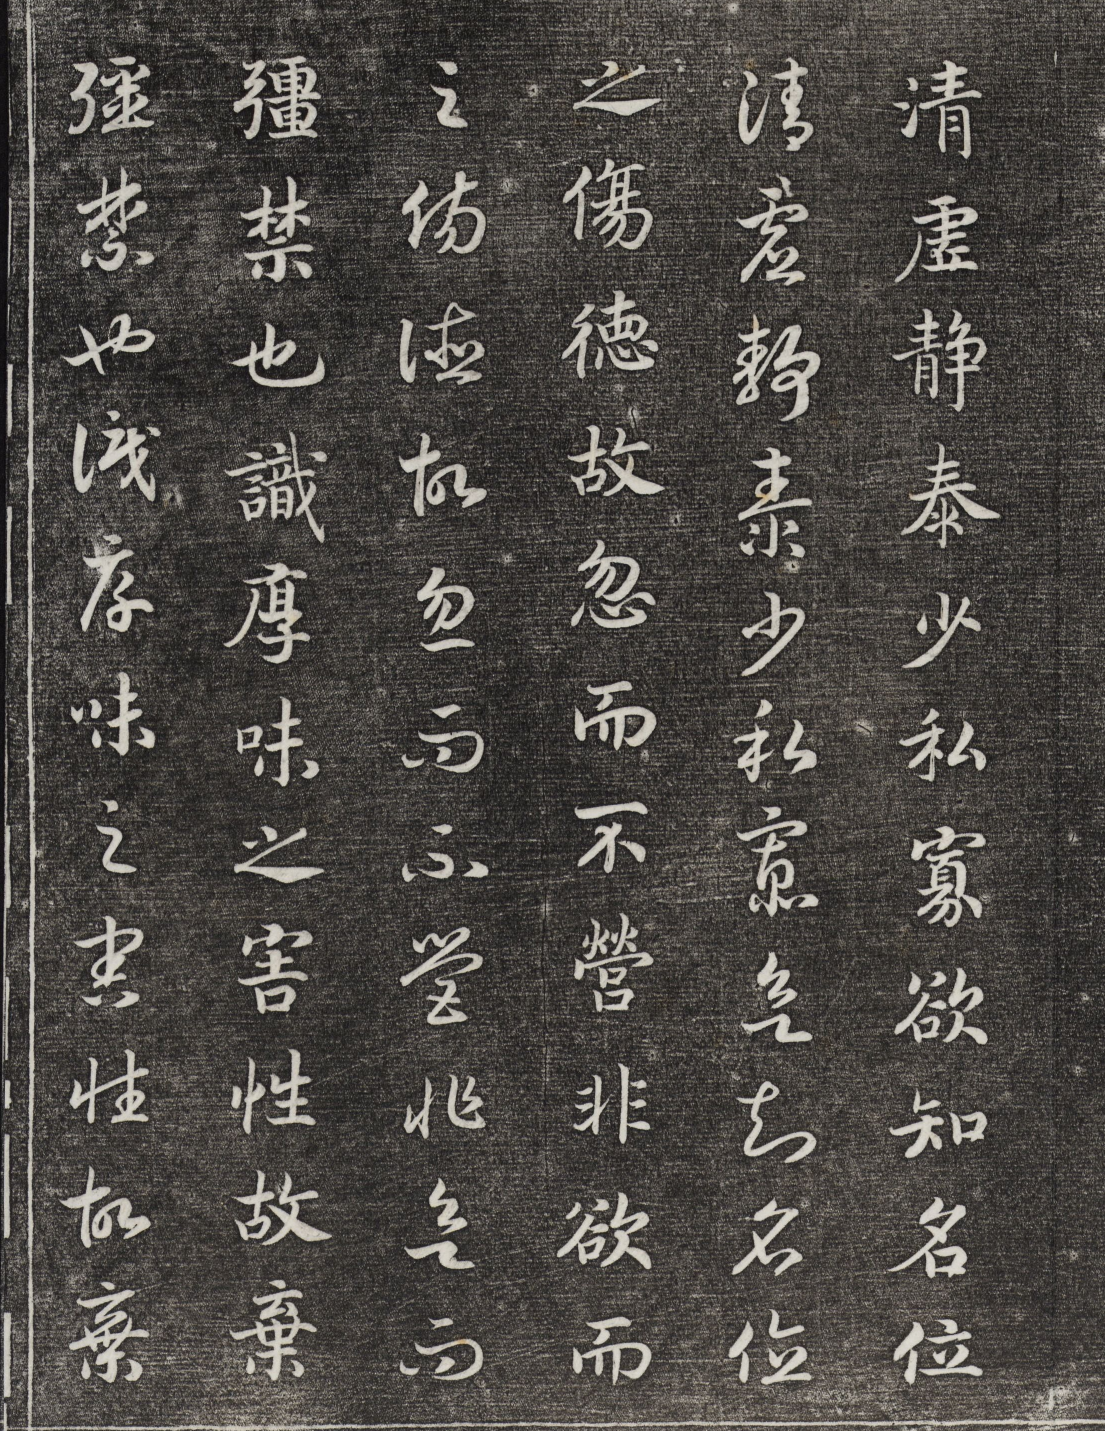 清虛静泰少私寡欲知名位
清虛静泰少私寡欲知名位
之傷德故忽而不營非欲而
之傷德故忽而不營非欲而
彊禁也識厚味之害性故棄
彊禁也識厚味之害性故棄